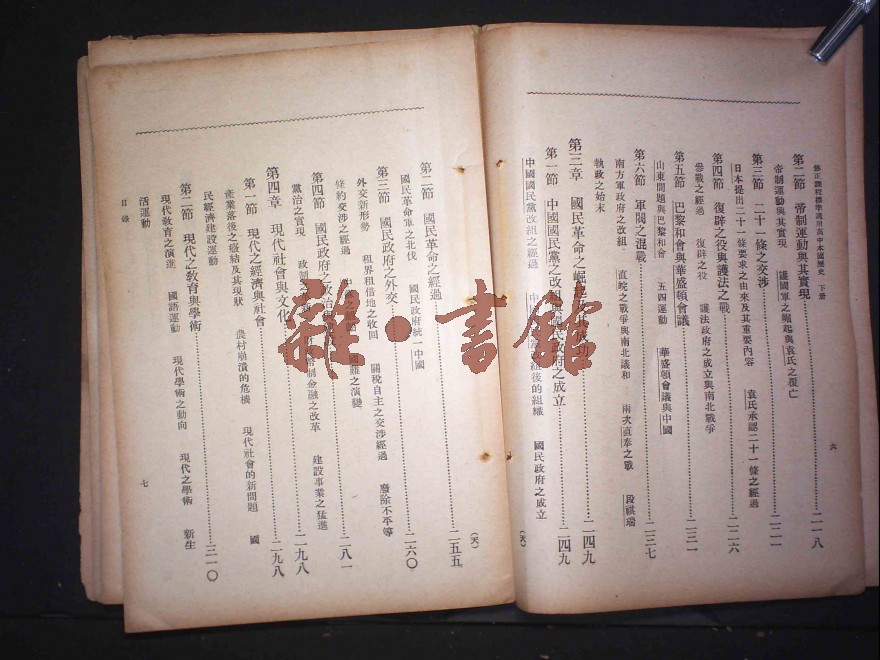 修正課程標準適用高中本國歷史 下册
六
第二節 帝制運動與其實現……二一八
帝制運動與其實現 護國軍之崛起與袁氏之覆亡
第三節 二十一條之交涉……二二六
日本提出二十一條要求之由來及其重要內容 袁氏承認二十一條之經過
第四節 復辟之役與護法之戰……二三一
參戰之經過 復辟之役 護法政府之成立與南北戰爭
第五節 巴黎和會與華盛頓會議
山東問題與巴黎和會 五四運動 華盛頓會議與中國
第六節 軍閥之混戰……二三七
南方軍政府之改組 直皖之戰爭與南北議和 兩次直奉之戰 段祺瑞
執政之始末
第三章 國民革命之崛起及其成功……二四九
第一節 中國國民黨之改組與國民政府之成立……二四九
中國國民黨改組之經過 中國國民黨改組後的組織 國民政府之成立
(天)
第二節 國民革命之經過……二五五
國民革命軍之北伐 國民政府統一中國
(天)
第三節 國民政府之外交……二六〇
外交新形勢 租界租借地之收回 關稅自主之交涉經過 廢除不平等
條約交涉之經過 之演變
第四節 國民政府之政治……二八一
黨治之實現 政制之 幣制金融之改革 建設事業之猛進
第四章 現代社會與文化……二九八
第一節 現代之經濟與社會……二九八
產業落後之癥結及其現狀 農村崩潰的危機 現代社會的新問題 國
民經濟建設運動
第二節 現代之教育與學術……三一〇
現代教育之演進 國語運動 現代學術之動向 現代之學術 新生
活運動
目錄
七
雜·書館